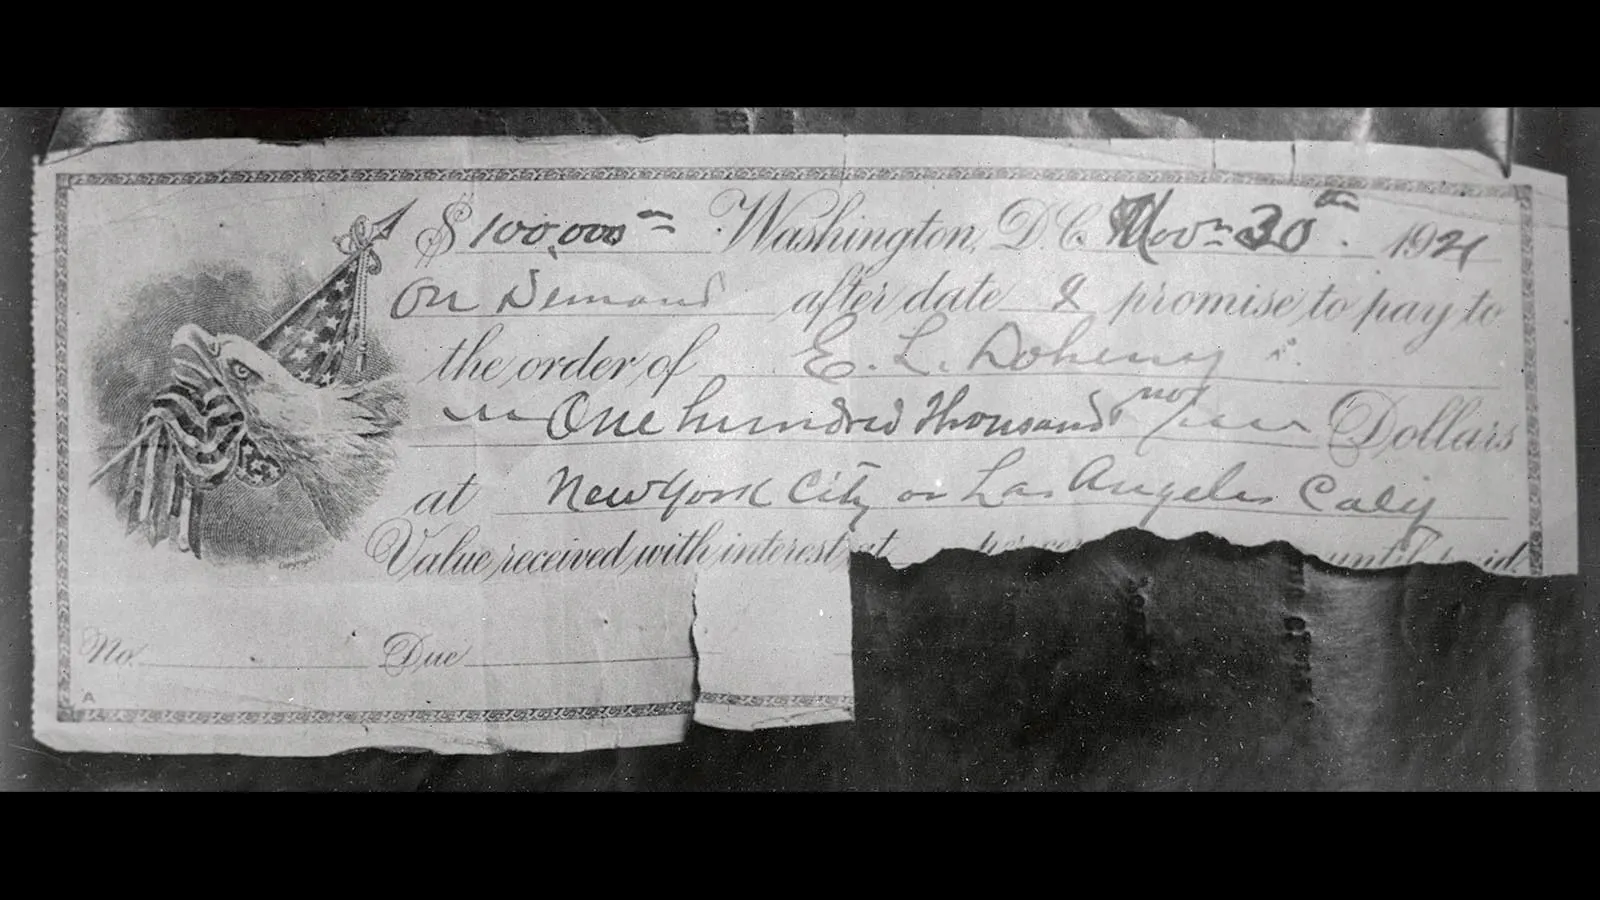 $ 100,000 Washington, D.C. Nov 30th 1921
On Demand after date I promise to pay to
the order of E. L. Doheny
One hundred thousand no/ Dollars
at New York City or Los Angeles Calif
Value received with interest at per cen until paid.
No. Due
A